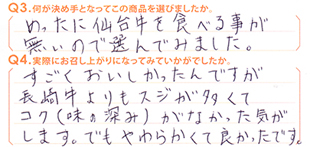 Q3.何が決め手となってこの商品を選びましたか。
めったに仙台牛を食べる事が
無いので選んでみました。
Q4.実際にお召し上がりになってみていかがでしたか。
すごくおいしかったんですが
長崎牛よりもスジが多くて
コク(味の深み)がなかった気が
します。でもやわらかくて良かったです。